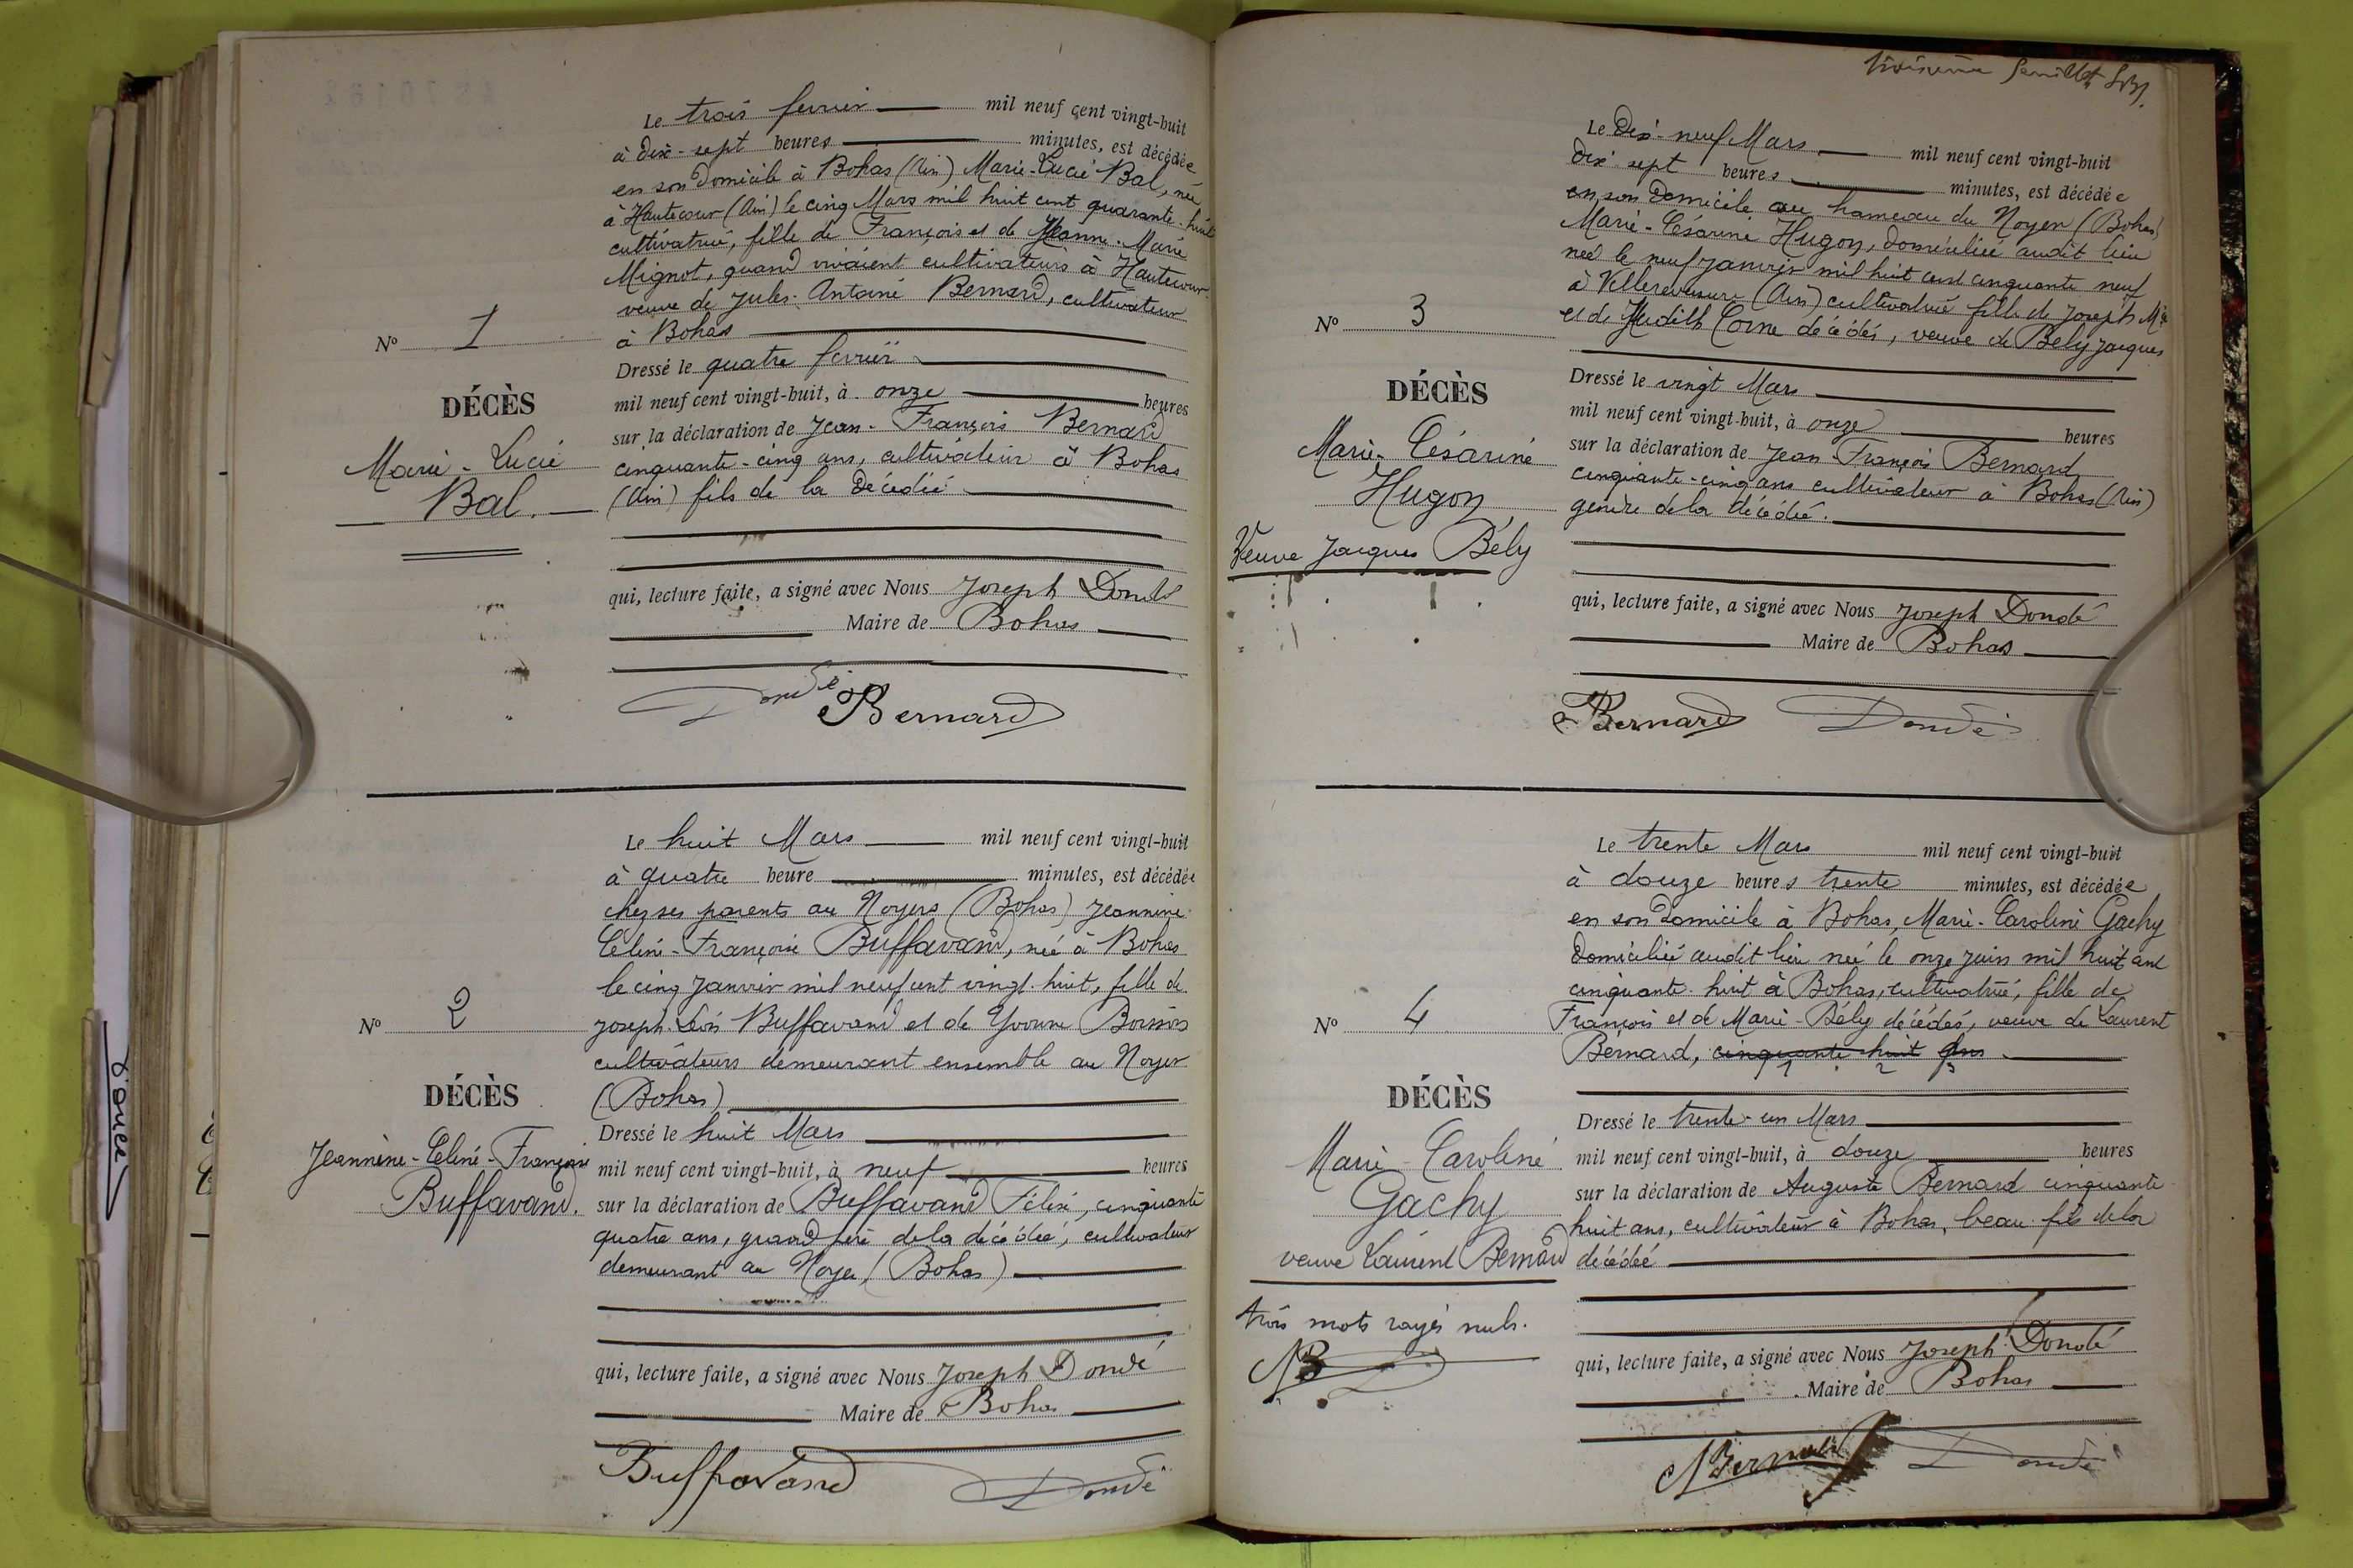 Le trois fevrier mil neuf cent vingt-huit
à dix-sept heures minutes, est décédée
en son domicile à Bohas (Ain) Marie-Lucie Bal, née
à Hautecour (Ain) le cinq Mars mil huit cent quarante-huit
cultivatrice, fille de François et de Jeanne-Marie
Mignot, quand vivaient cultivateurs à Hautecour
veuve de Jules-Antoine Bernard, cultivateur
à Bohas
N° 1
DÉCÈS
Marie-Lucie
Bal.
Dressé le quatre fevrier
mil neuf cent vingt-huit, à onze heures
sur la déclaration de Jean-François Bernard
cinquante-cinq ans, cultivateur à Bohas
(Ain) fils de la décédée
qui, lecture faite, a signé avec Nous Joseph Dondé
Maire de Bohas
Dondé Bernard
Le huit Mars mil neuf cent vingt-huit
à quatre heure minutes, est décédée
chez ses parents au Noyers (Bohas) Jeannine
Céline-Françoise Buffavand, née à Bohas
le cinq Janvier mil neuf cent vingt-huit, fille de
Joseph-Léon Buffavand et de Yvonne
cultivateurs demeurant ensemble au Noyer
(Bohas)
N° 2
DÉCÈS
Jeannine-Céline-Françoise
Buffavand.
Dressé le huit Mars
mil neuf cent vingt-huit, à neuf heures
sur la déclaration de Buffavand Félix, cinquante
quatre ans, grand père de la décédée, cultivateur
demeurant au Noyer (Bohas)
qui, lecture faite, a signé avec Nous Joseph Dondé
Maire de Bohas
Buffavand Dondé
troisième feuillet
Le Dix-neuf Mars mil neuf cent vingt-huit
dix sept heures minutes, est décédée
en son domicile au hameau du Noyer (Bohas)
Marie-Césarine Hugon, domiciliée audit lieu
née le neuf janvier mil huit cent cinquante neuf
à Villereversure (Ain) cultivatrice fille de Joseph Mie
et de Judith Corne décédés, veuve de Bély Jacques
N° 3
DÉCÈS
Marie-Césarine
Hugon
Veuve Jacques Bély
Dressé le vingt Mars
mil neuf cent vingt-huit, à onze heures
sur la déclaration de Jean-François Bernard
cinquante-cinq ans cultivateur à Bohas (Ain)
gendre de la décédée.
qui, lecture faite, a signé avec Nous Joseph Dondé
Maire de Bohas
Bernard Dondé
Le trente Mars mil neuf cent vingt-huit
à douze heures trente minutes, est décédée
en son domicile à Bohas, Marie-Caroline Gachy
domiciliée audit lieu née le onze juin mil huit cent
cinquante-huit à Bohas, cultivatrice, fille de
François et de Marie-Bély décédés, veuve de Laurent
Bernard, cinquante huit ans
N° 4
DÉCÈS
Marie-Caroline
Gachy
veuve Laurent Bernard
trois mots rayés nuls.
Dressé le trente-un Mars
mil neuf cent vingt-huit, à douze heures
sur la déclaration de Auguste Bernard cinquante
huit ans, cultivateur à Bohas, beau-fils de la
décédée
qui, lecture faite, a signé avec Nous Joseph Dondé
Maire de Bohas
Bernard Dondé